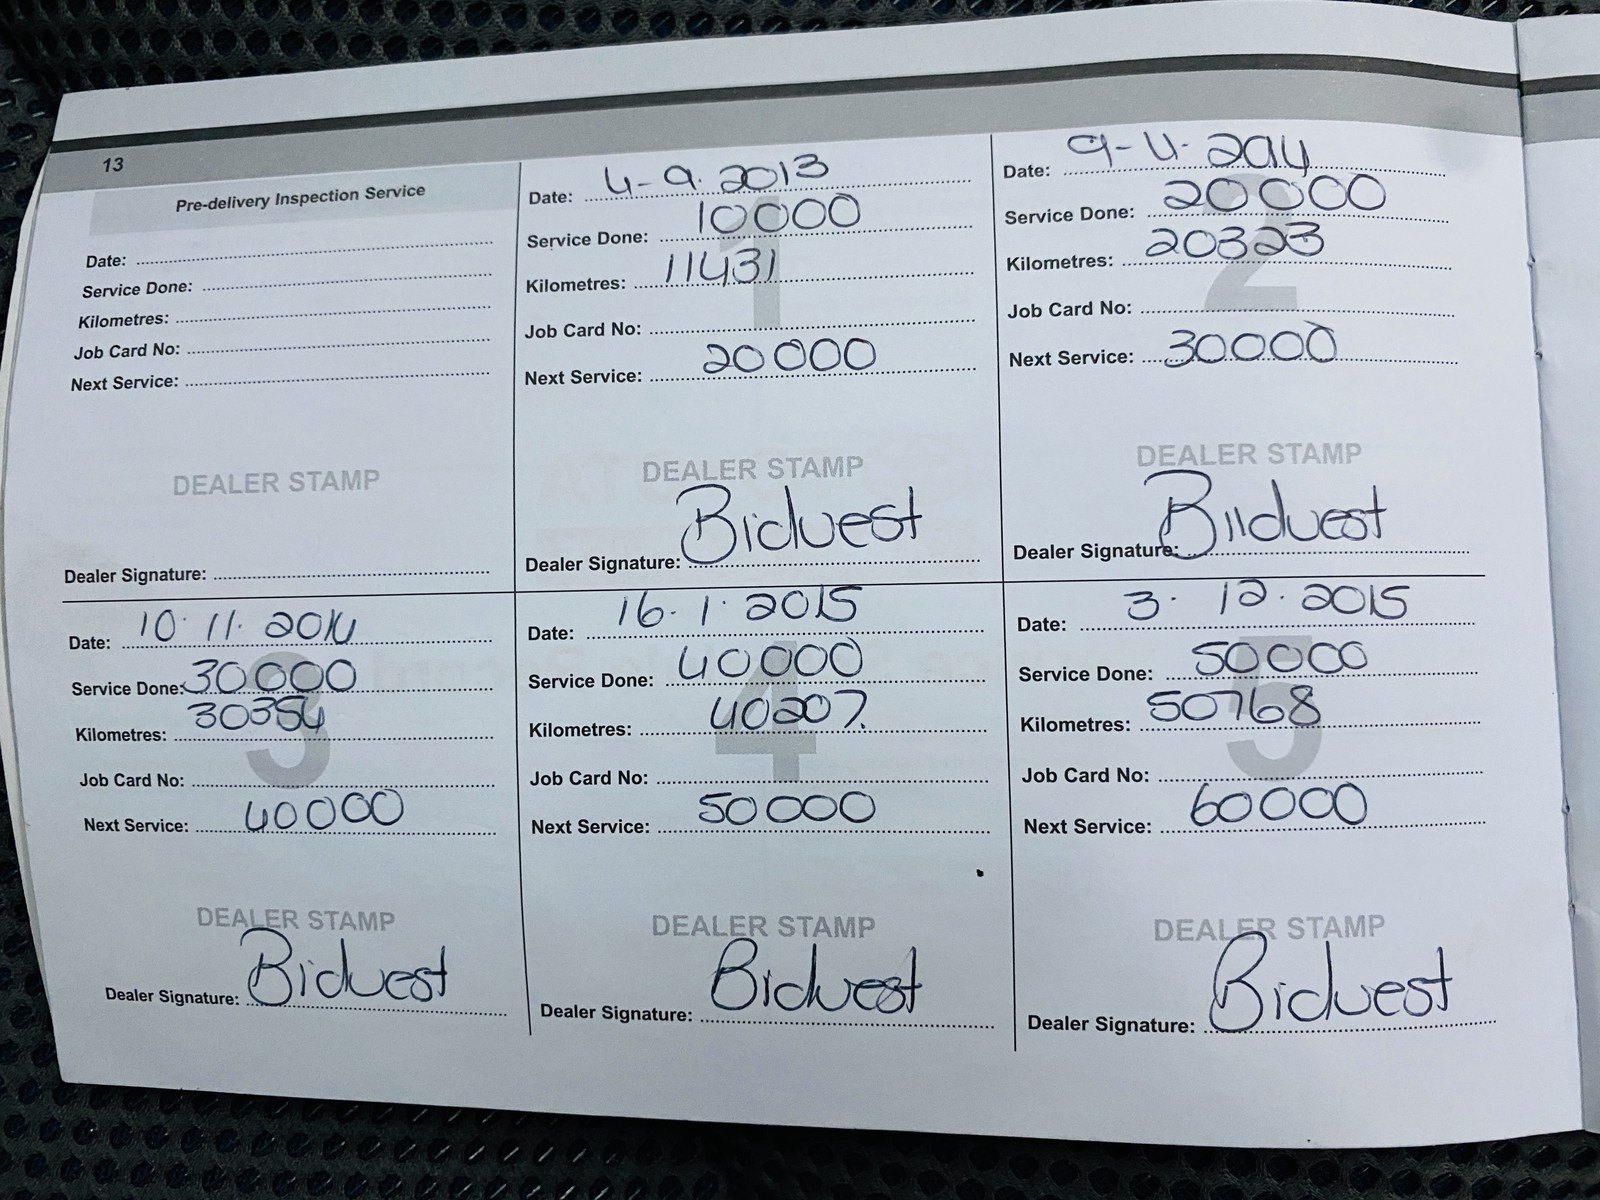 13
Pre-delivery Inspection Service
Date:
Service Done:
Kilometres:
Job Card No:
Next Service:
DEALER STAMP
Dealer Signature:
1
Date: 4-9.2013
Service Done: 10000
Kilometres: 11431
Job Card No:
Next Service: 20000
DEALER STAMP
Dealer Signature: Bidvest
2
Date: 9-4.2014
Service Done: 20000
Kilometres: 20323
Job Card No:
Next Service: 30000
DEALER STAMP
Dealer Signature: Bidvest
3
Date: 10.11.2014
Service Done: 30000
Kilometres: 30354
Job Card No:
Next Service: 40000
DEALER STAMP
Dealer Signature: Bidvest
4
Date: 16.1.2015
Service Done: 40000
Kilometres: 40207.
Job Card No:
Next Service: 50000
DEALER STAMP
Dealer Signature: Bidvest
5
Date: 3.12.2015
Service Done: 50000
Kilometres: 50768
Job Card No:
Next Service: 60000
DEALER STAMP
Dealer Signature: Bidvest